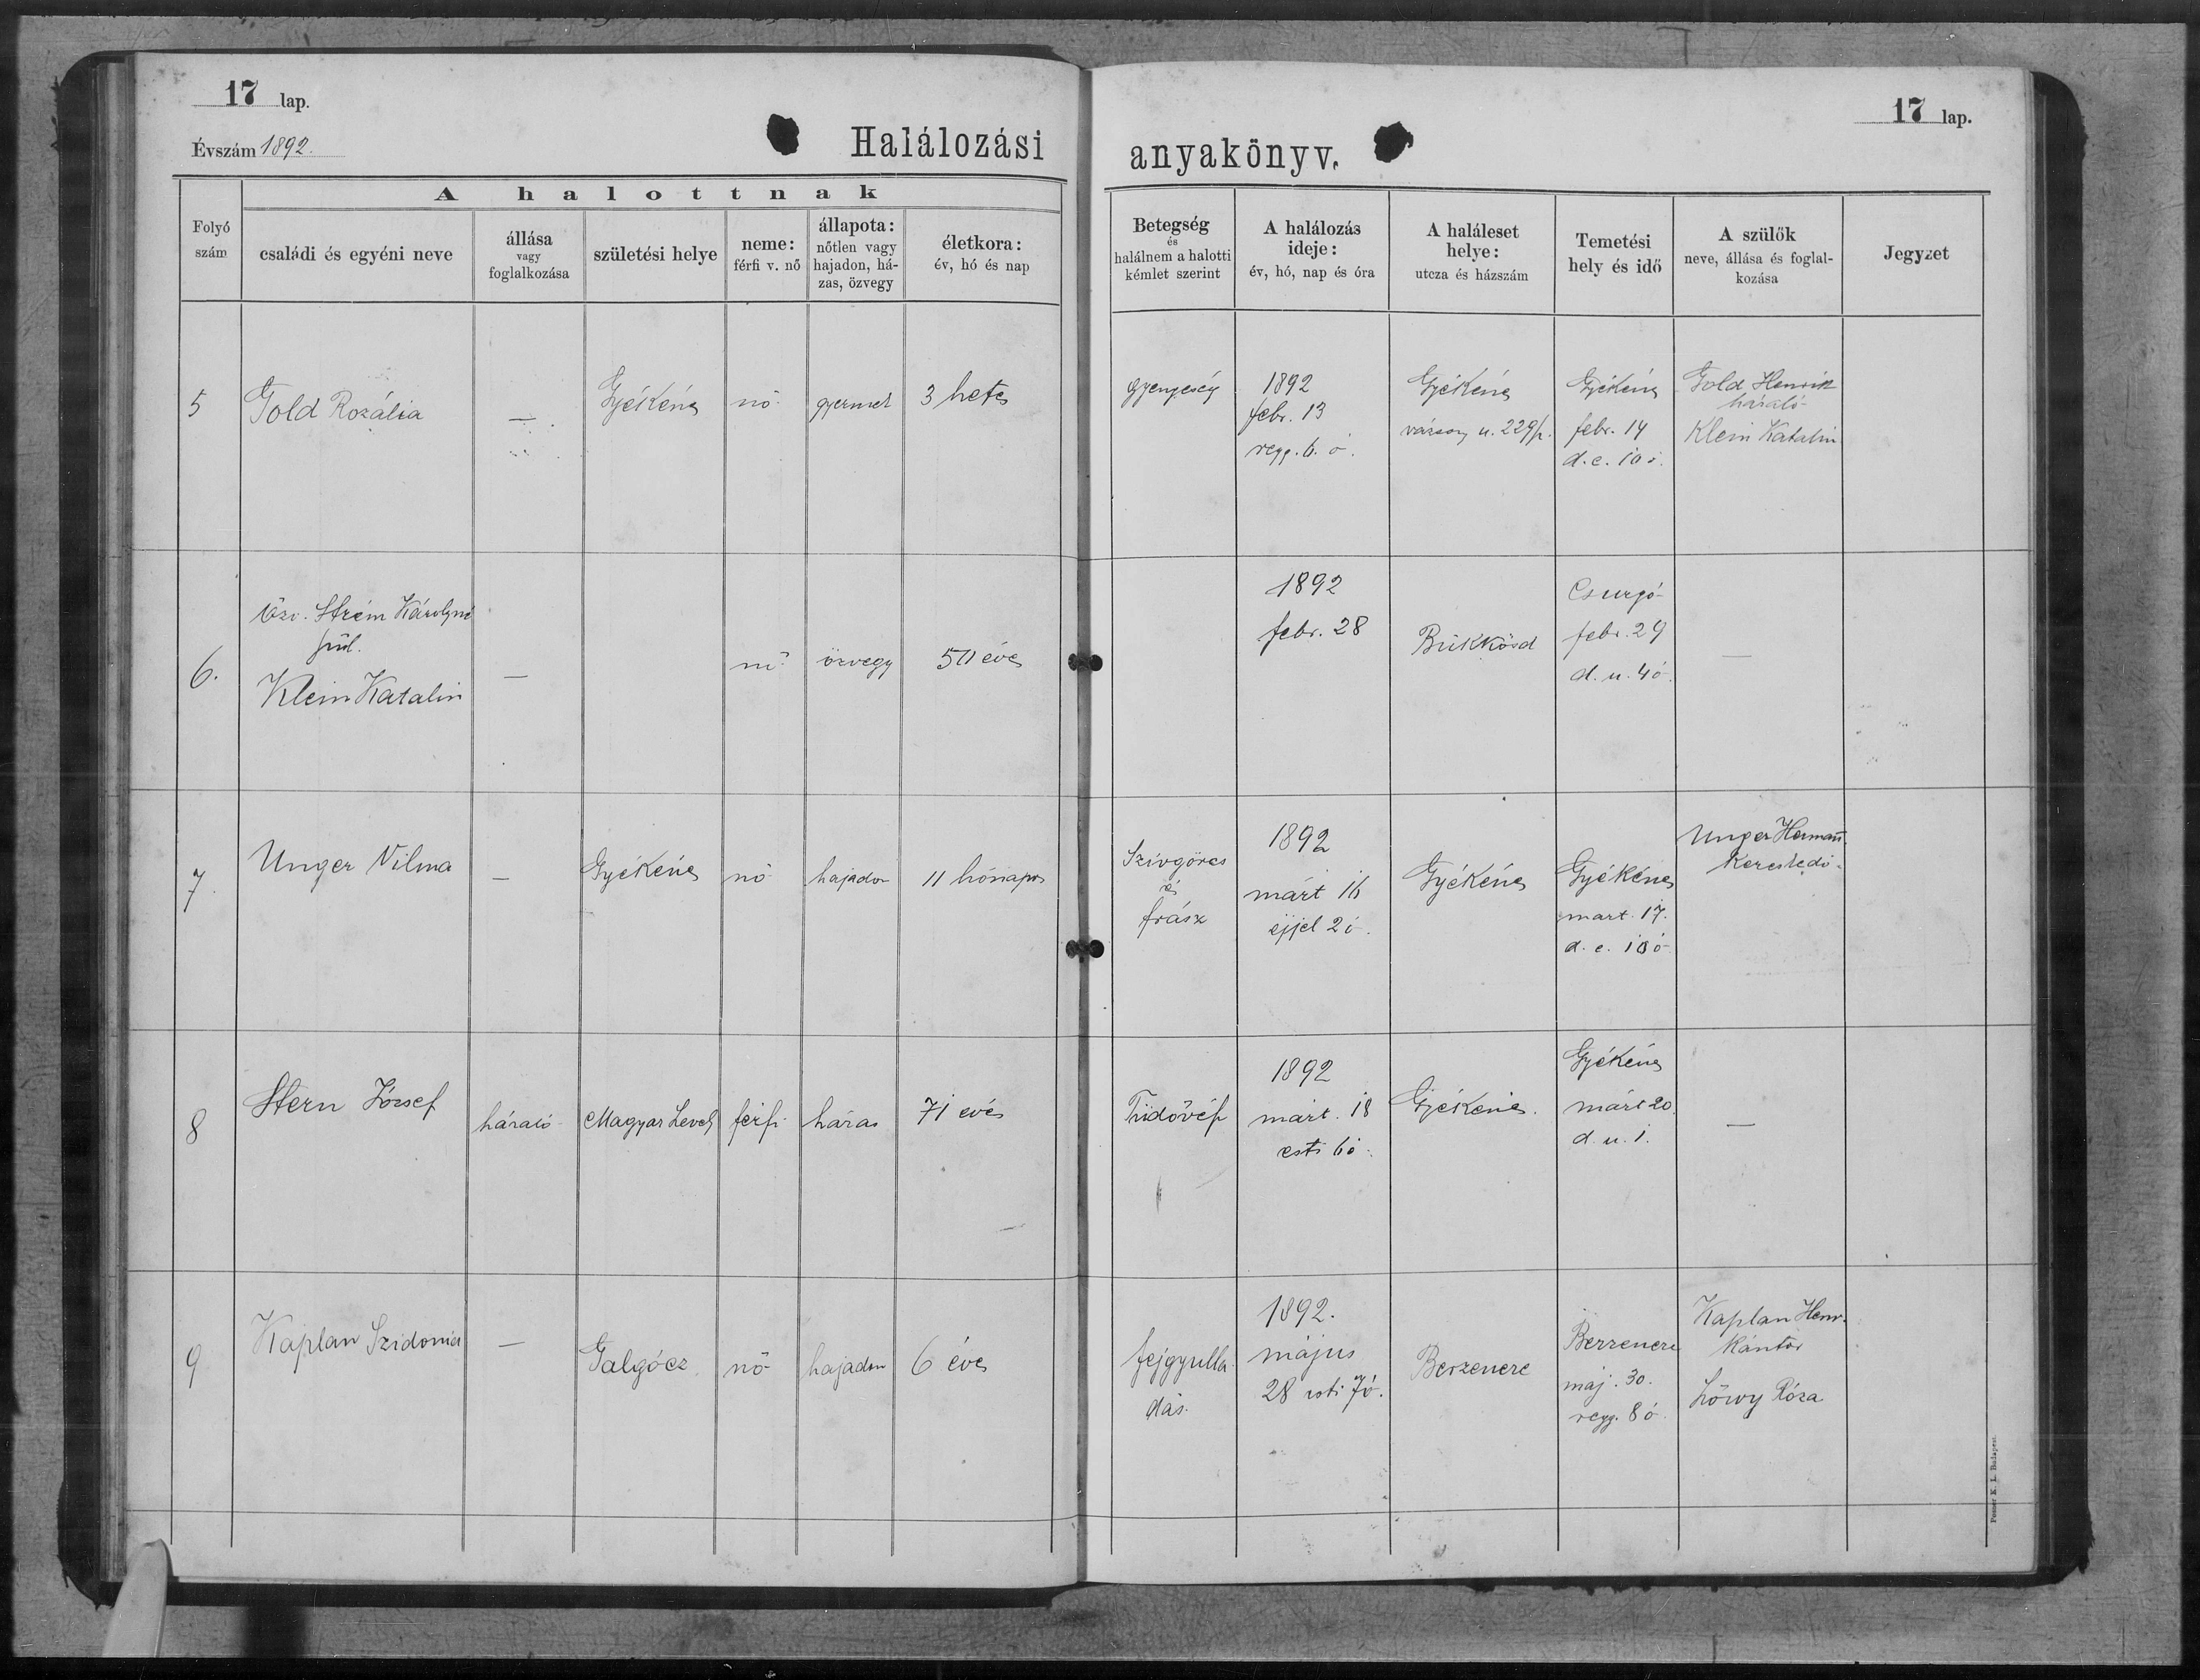 17 lap.
Évszám 1892.
Halálozási
anyakönyv.
17 lap.
A halottnak
Folyó
szám
családi és egyéni neve
állása
vagy
foglalkozása
születési helye
neme:
férfi v. nő
állapota:
nőtlen vagy
hajadon, há-
zas, özvegy
életkora:
év, hó és nap
Betegség
és
halálnem a halotti
kémlet szerint
A halálozás
ideje:
év, hó, nap és óra
A haláleset
helye:
utcza és házszám
Temetési
hely és idő
A szülők
neve, állása és foglal-
kozása
Jegyzet
5
Gold Rozália
—
Gyékénes
nő
gyermek
3 hetes
gyengeség
1892
febr. 13
regg. 6. ó.
Gyékénes
u. 229/
Gyékénes
febr. 14
d. e. 10 ó.
Gold Henrik
házaló
Klein Katalin
6.
Özv. Strém Károlyné
szül.
Klein Katalin
—
nő
özvegy
50 éves
1892
febr. 28
Bükkösd
Csurgó
febr. 29
d. u. 4 ó.
—
7.
Unger Vilma
—
Gyékénes
nő
hajadon
11 hónapos
Szívgörcs
és
frász
1892
márt 16
éjjel 2 ó.
Gyékénes
Gyékénes
mart. 17.
d. e. 10 ó
Unger Hermann
Kereskedő
8
Stern József
házaló
Magyar
férfi
házas
71 évés
Tüdővész
1892
márt. 18
esti 6 ó.
Gyékénes.
Gyékénes
márt 20.
d. u. 1.
—
9
Kaplan Szidonia
—
Galgócz
nő
hajadon
6 éves
fejgyulla
dás.
1892.
május
28 esti 7 ó.
Berzencze
Berzencze
maj. 30.
regg. 8 ó.
Kaplan Henr.
Kántor
Löwy Róza
Posner K. L. Budapest.